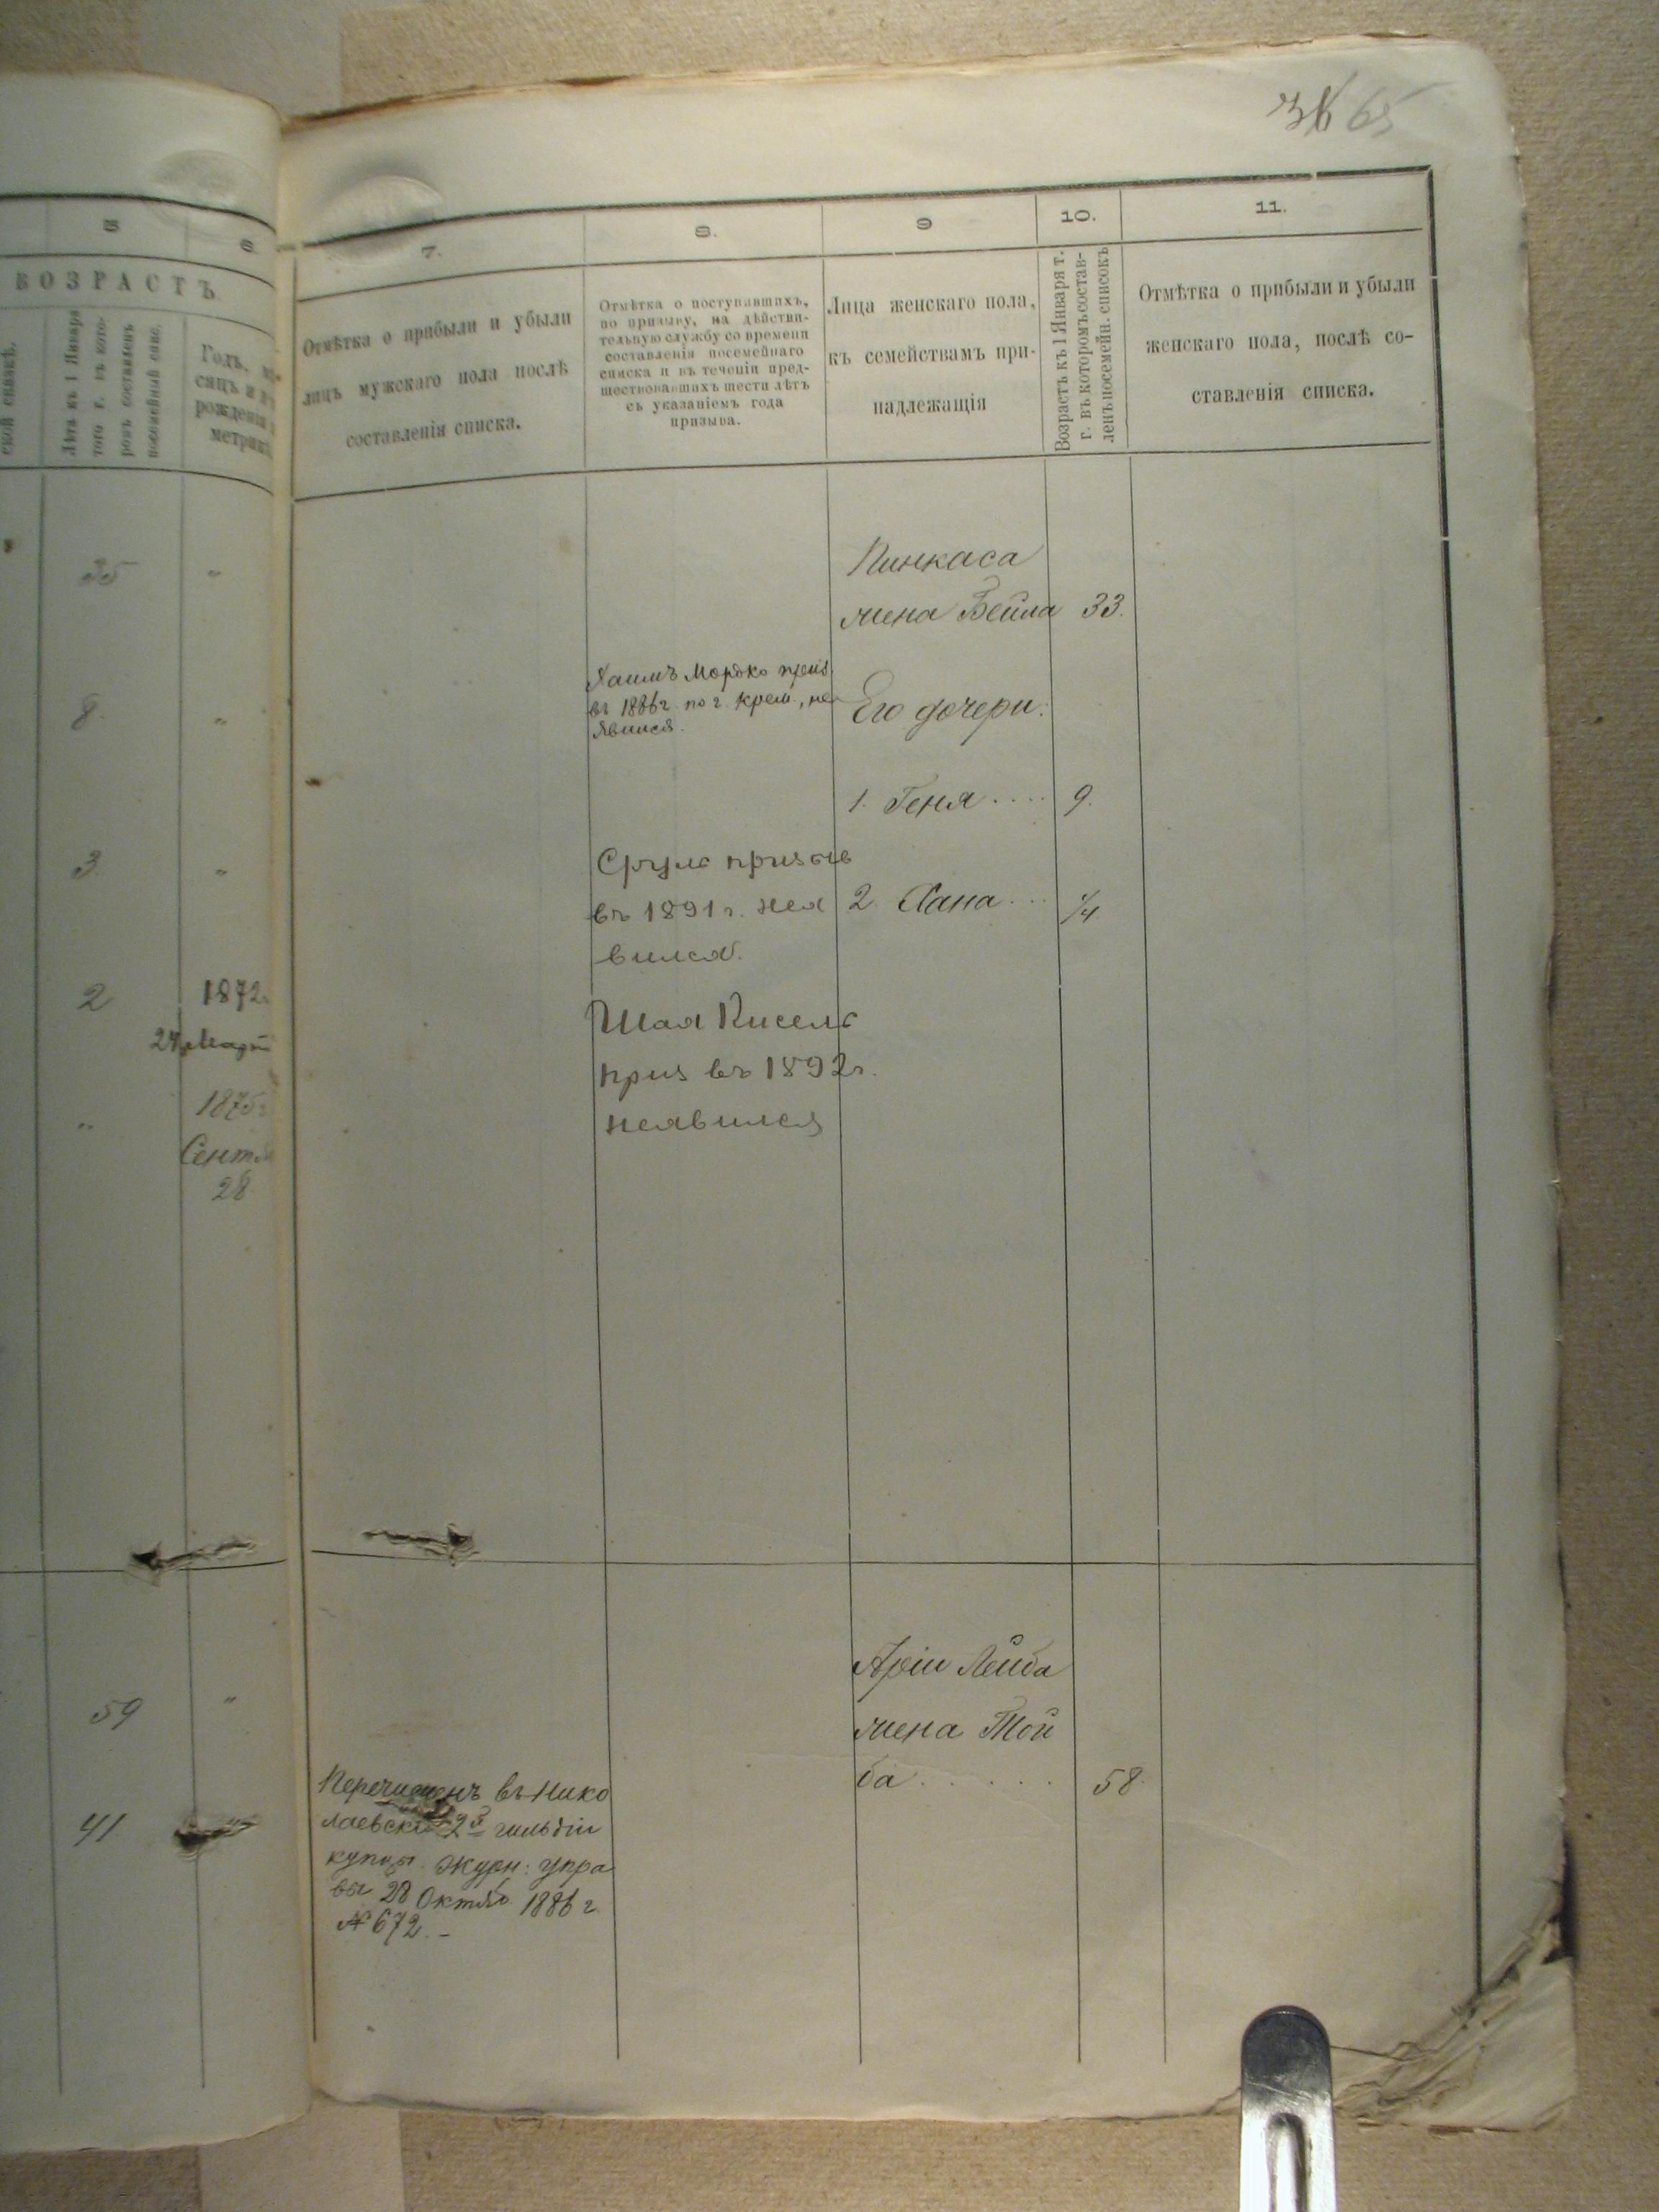 65
5
6.
7.
8.
9
10.
11.
ВОЗРАСТЪ
Лѣта къ 1 Января
того г. въ кото-
ромъ составленъ
посемейный спис.
Годъ, мѣ-
сяцъ и
рожденія
метрик
Отмѣтка о прибыли и убыли
лицъ мужскаго пола послѣ
составленія списка.
Отмѣтка о поступившихъ,
по призыву, на дѣйстви-
тельную службу со времени
составленія посемейнаго
списка и въ теченіи пред-
шествовавшихъ шести лѣтъ
съ указаніемъ года
призыва.
Лица женскаго пола,
къ семействамъ при-
надлежащія
Возрастъ къ 1 Января т.
г. въ которомъ состав-
ленъ посемейн. списокъ
Отмѣтка о прибыли и убыли
женскаго пола, послѣ со-
ставленія списка.
35 "
Пинкаса
жена Бейла 33.
8. "
Хаимъ Мордко приз.
въ 1886 г. по г. Крем., не
явился.
Его дочери:
1. Геня .... 9.
3 "
Сруль призыв
въ 1891 г. нея
вился.
2. Хана ... 1/4
2 1872
24 Март
Шая Кисель
приз въ 1892 г.
неявился
" 1875
Сентя
28
59 "
Аріи Лейба
жена Той
ба ...... 58.
41 "
Перечисленъ въ Нико
лаевскіе 2й гильдіи
купцы. Журн: Упра
вы 28 Октяб. 1886 г.
№ 672. -